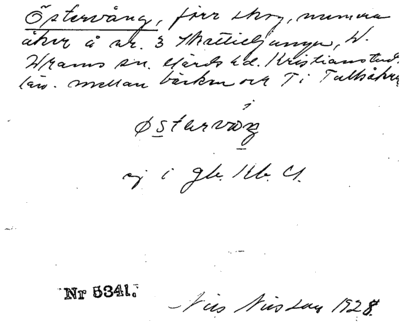 Östervång, förr skog, numera
åker å nr. 3 Skättiljunga, V.
Vrams sn. Gärds hd. Kristianstads
län. mellan bäcken och T i Tullsåkra
östervåŋ
ej i gb. Kb. U.
Nr 5341.
Nils Nilsson 1928.